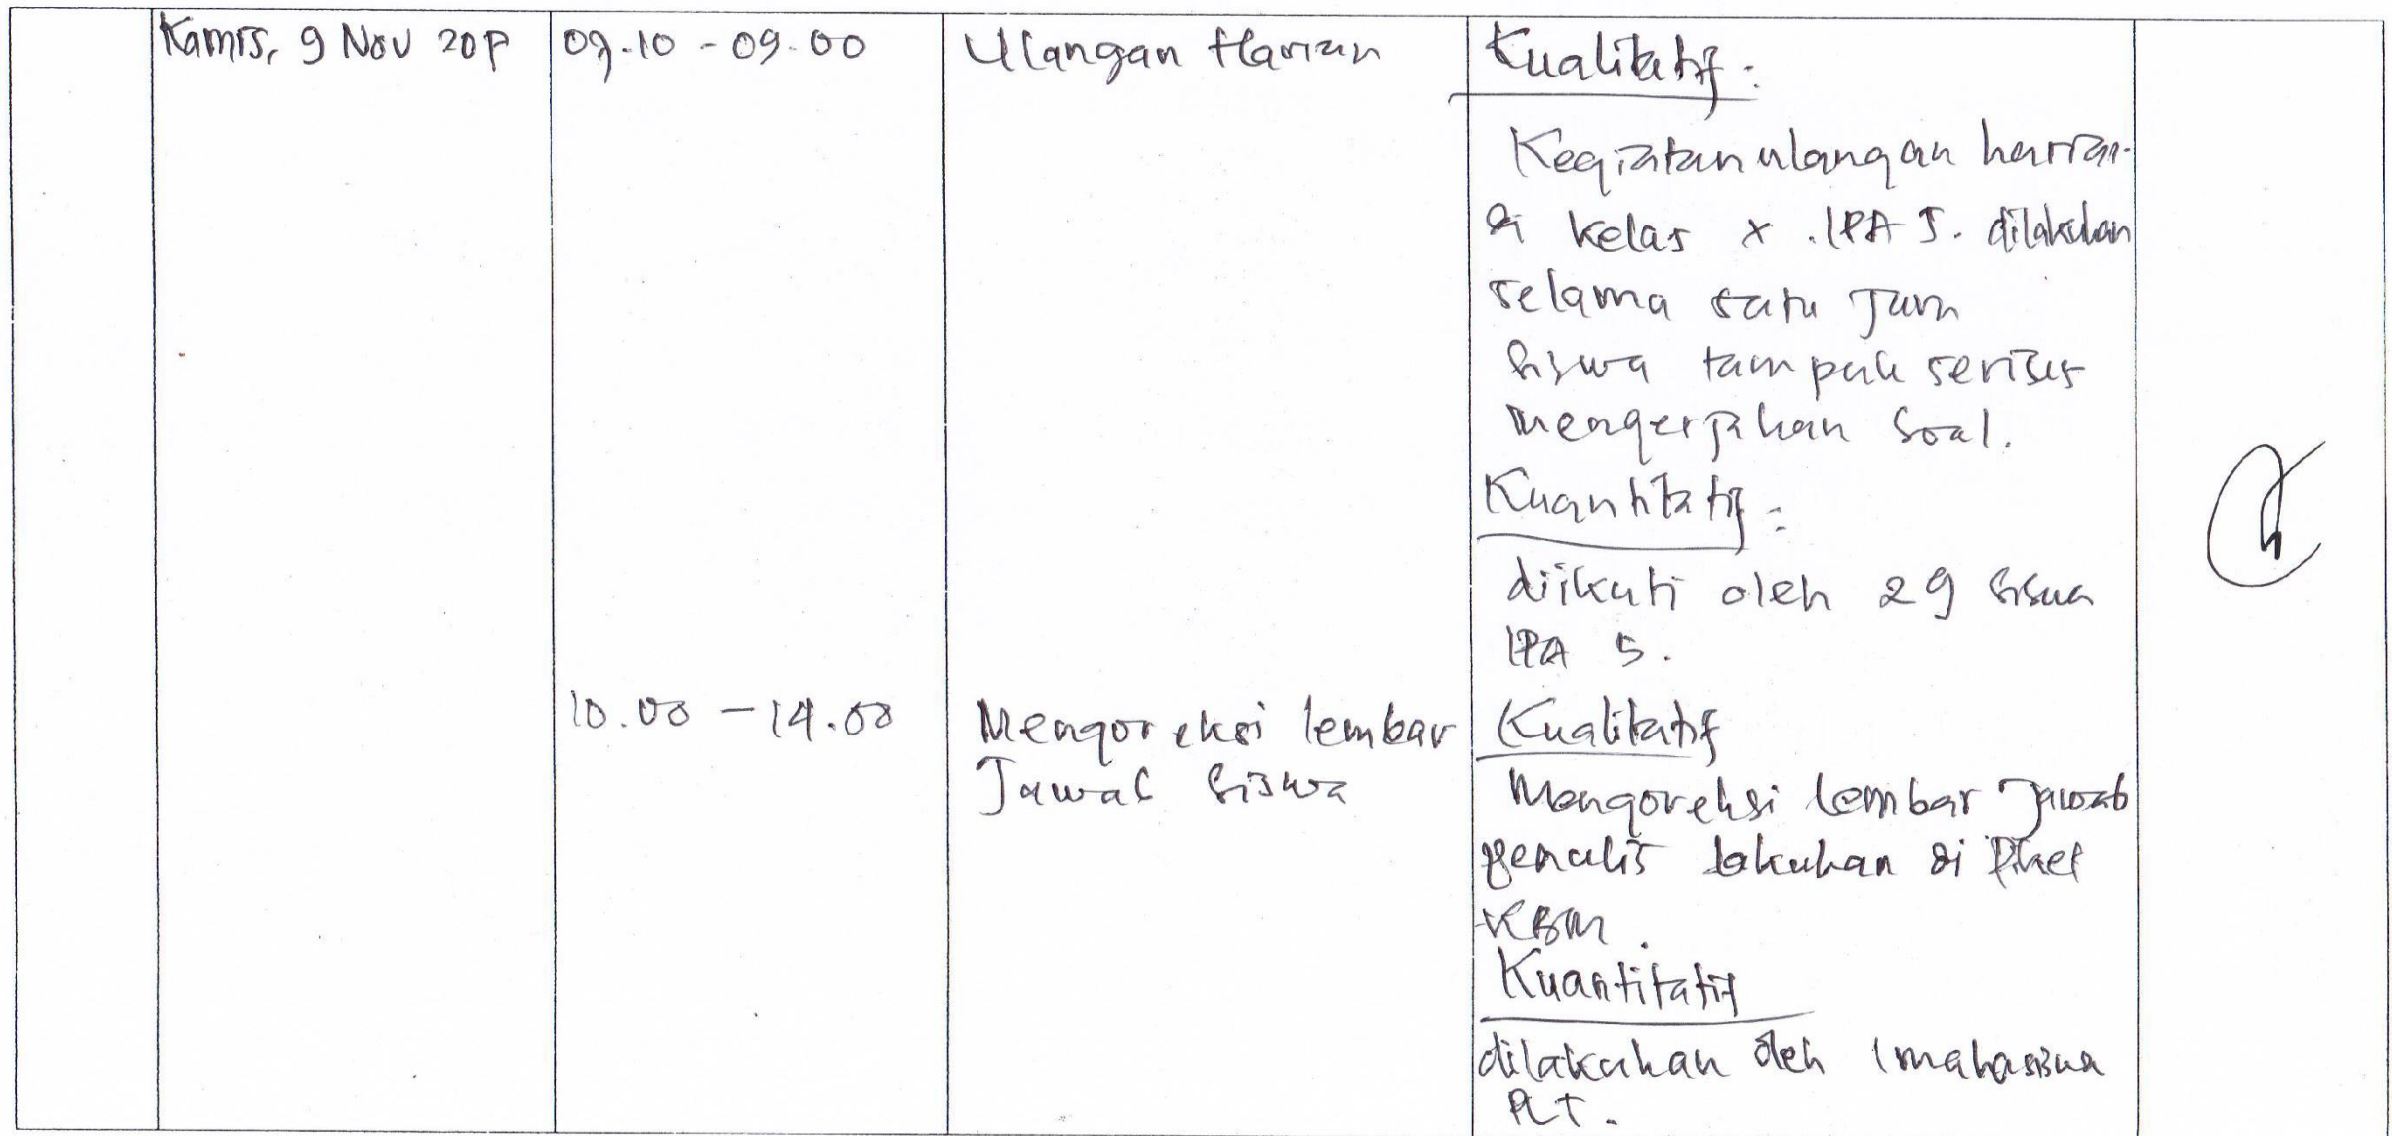 Kamis, 9 Nov 2017
07.10 - 09.00
Ulangan Harian
Kualitatif :
Kegiatan ulangan harian
di kelas X .IPA 5. dilakukan
selama satu jam
siswa tampak serius
mengerjakan soal.
Kuantitatif :
diikuti oleh 29 siswa
IPA 5.
10.00 - 14.00
Mengoreksi lembar
Jawab siswa
Kualitatif
Mengoreksi lembar jawab
penulis lakukan di
KBM.
Kuantitatif
dilakukan oleh 1 mahasiswa
PLT.